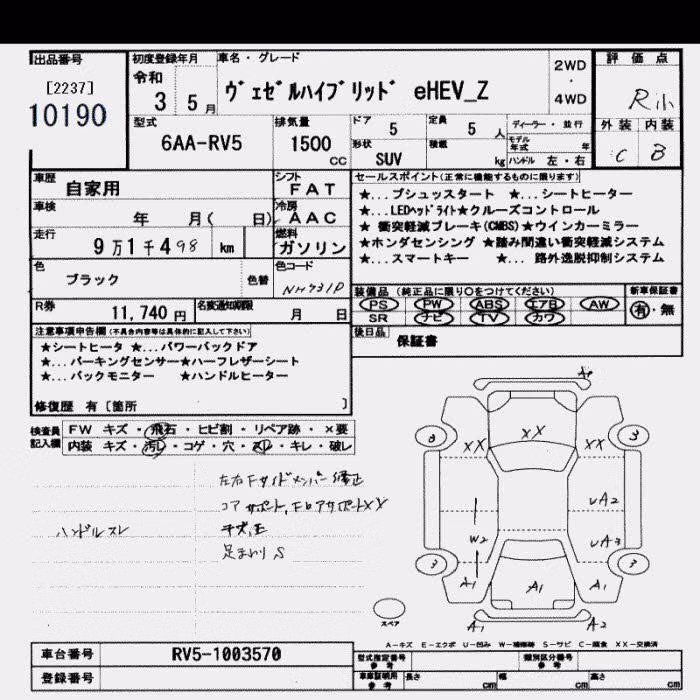 出品番号
[2237]
10190
初度登録年月
令和 3 5月
車名・グレード
ヴェゼルハイブリッド eHEV_Z
2WD
・
4WD
評価点
R小
外装 内装
C B
型式
6AA-RV5
排気量
1500
cc
ドア 5
定員 5人
形状
SUV
積載 kg
ディーラー・並行
モデル年式 年
ハンドル 左・右
車歴 自家用
シフト FAT
車検 年 月( 日)
冷房 AAC
走行 9万1千498 km
燃料 ガソリン
色 ブラック 色替
色コード NH731P
R券 11,740円
名変通知期限 月 日
セールスポイント(正常に機能するものに限ります)
★...プシュッスタート ★...シートヒーター
★...LEDヘッドライト★クルーズコントロール
★ 衝突軽減ブレーキ(CMBS)★ウインカーミラー
★ホンダセンシング ★踏み間違い衝突軽減システム
★...スマートキー ★... 路外逸脱抑制システム
装備品(純正品に限り○をつけてください)
PS PW ABS エアB AW
SR ナビ TV カワ
新車保証書
有・無
後日品 保証書
注意事項申告欄(不具合内容等は具体的に記入して下さい)
★シートヒータ ★...パワーバックドア
★...パーキングセンサー★ハーフレザーシート
★...バックモニター ★ハンドルヒーター
修復歴 有〔箇所 〕
検査員記入欄
FW キズ・飛石・ヒビ割・リペア跡・×要
内装 キズ・汚レ・コゲ・穴・スレ・キレ・破レ
左右Fサイドメンバー修正
コアサポート、
ハンドルスレ
足まわりS
XX
XX
XX
3
3
3
A2
W2
A1
A1
A1
A1
A2
スペア
A-キズ E-エクボ U-凹み W-補修跡 S-サビ C-腐食 XX-交換済
車台番号 RV5-1003570
登録番号
型式指定番号 参考
類別区分番号 参考
車庫証明用 参考
長さ cm 幅 cm 高さ cm